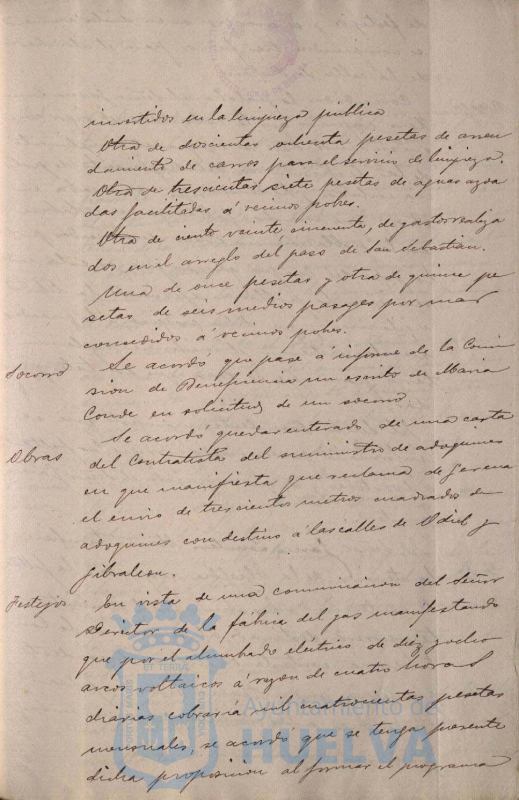 invertidos en la limpieza pública
Otra de doscientas ochenta pesetas de arren
damiento de carros para el servicio de limpieza.
Otra de trescientas siete pesetas de aguas azoa
das facilitadas á vecinos pobres.
Otra de ciento veinte cincuenta, de gastos realiza
dos en el arreglo del paseo de San Sebastián.
Una de once pesetas y otra de quince pe
setas de seis medios pasages por mar
concedidos á vecinos pobres.
Socorro
Se acordó que pase á informe de la Comi
sion de Beneficencia un escrito de Maria
Conde en solicitud de un socorro.
Obras
Se acordó quedar enterado de una carta
del Contratista del suministro de adoquines
en que manifiesta que reclama de Gerena
el envio de trescientos metros cuadrados de
adoquines con destino á las calles de Odiel y
Gibraleon.
Festejos
En vista de una comunicacion del Señor
Director de la fábrica del gas manifestando
que por el alumbrado eléctrico de diez y ocho
arcos voltaicos á razon de cuatro horas
diarias cobraría mil cuatrocientas pesetas
mensuales, se acordó que se tenga presente
dicha proposicion al formar el programa
Ayuntamiento de
HUELVA